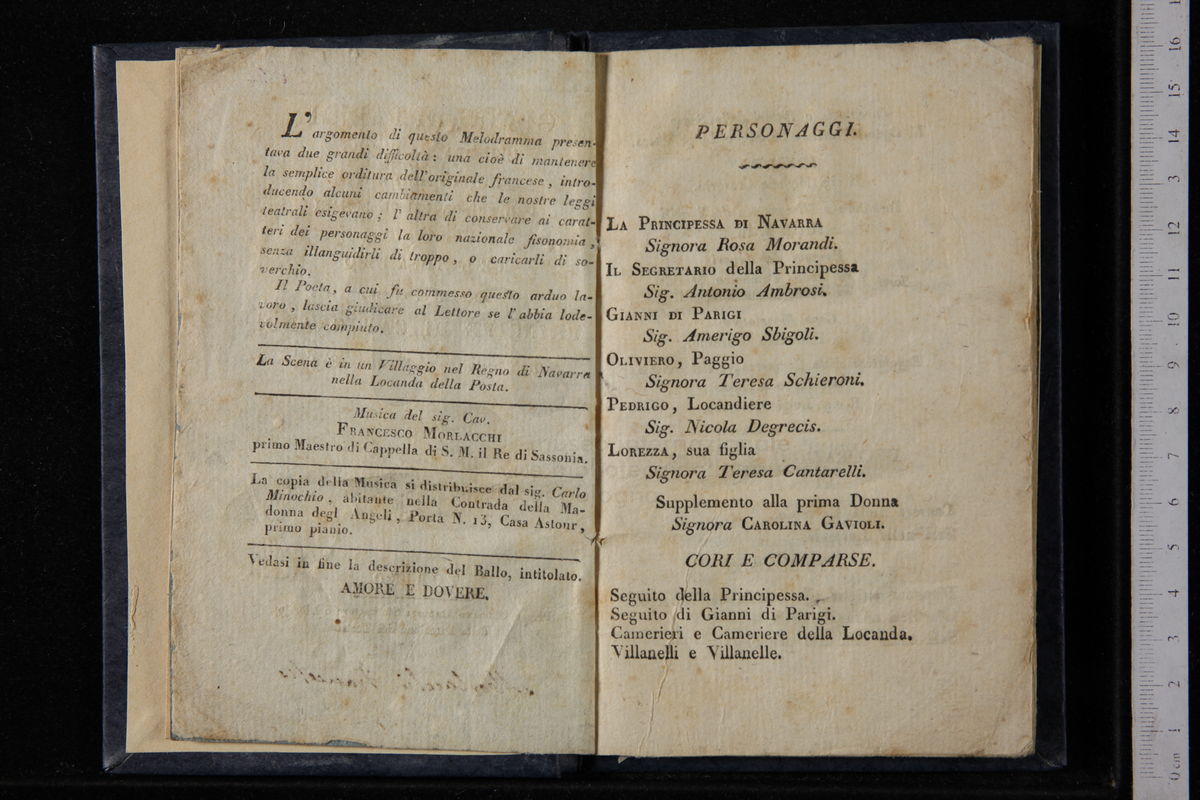 L'argomento di questo Melodramma presen-
tava due grandi difficoltà: una cioè di mantenere
la semplice orditura dell'originale francese, intro-
ducendo alcuni cambiamenti che le nostre leggi
teatrali esigevano; l'altra di conservare ai carat-
teri dei personaggi la loro nazionale fisonomia,
senza illanguidirli di troppo, o caricarli di so-
verchio.
Il Poeta, a cui fu commesso questo arduo la-
voro, lascia giudicare al Lettore se l'abbia lode-
volmente compiuto.
La Scena è in un Villaggio nel Regno di Navarra
nella Locanda della Posta.
Musica del sig. Cav.
FRANCESCO MORLACCHI
primo Maestro di Cappella di S. M. il Re di Sassonia.
La copia della Musica si distribuisce dal sig. Carlo
Minochio, abitante nella Contrada della Ma-
donna degl Angeli, Porta N. 13, Casa Astour,
primo pianio.
Vedasi in fine la descrizione del Ballo, intitolato.
AMORE E DOVERE.
PERSONAGGI.
LA PRINCIPESSA DI NAVARRA
Signora Rosa Morandi.
IL SEGRETARIO della Principessa
Sig. Antonio Ambrosi.
GIANNI DI PARIGI
Sig. Amerigo Sbigoli.
OLIVIERO, Paggio
Signora Teresa Schieroni.
PEDRIGO, Locandiere
Sig. Nicola Degrecis.
LOREZZA, sua figlia
Signora Teresa Cantarelli.
Supplemento alla prima Donna
Signora CAROLINA GAVIOLI.
CORI E COMPARSE.
Seguito della Principessa.
Seguito di Gianni di Parigi.
Camerieri e Cameriere della Locanda.
Villanelli e Villanelle.
0 cm 1 2 3 4 5 6 7 8 9 10 11 12 3 14 15 16